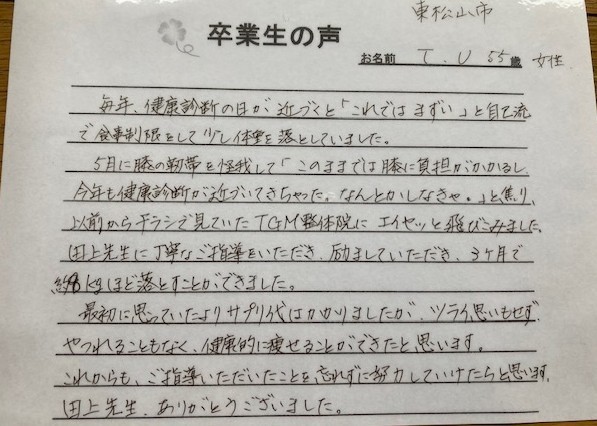 東松山市
卒業生の声
お名前 T.U 55歳 女性
毎年、健康診断の日が近づくと「これではまずい」と自己流
で食事制限をして少し体重を落としていました。
5月に膝の靭帯を怪我して「このままでは膝に負担がかかるし、
今年も健康診断が近づいてきちゃった。なんとかしなきゃ。」と焦り、
以前からチラシで見ていたTGM整体院にエイヤッと飛びこみました。
田上先生に丁寧なご指導をいただき、励ましていただき、3ヶ月で
約8kgほど落とすことができました。
最初に思っていたよりサプリ代はかかりましたが、ツライ思いもせず、
やつれることもなく、健康的に痩せることができたと思います。
これからも、ご指導いただいたことを忘れずに努力していけたらと思います。
田上先生、ありがとうございました。